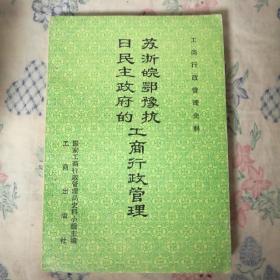 工商行政管理史料
苏浙皖鄂豫抗
日民主政府的工商行政管理
国家工商行政管理局史料小组主编
工商出版社